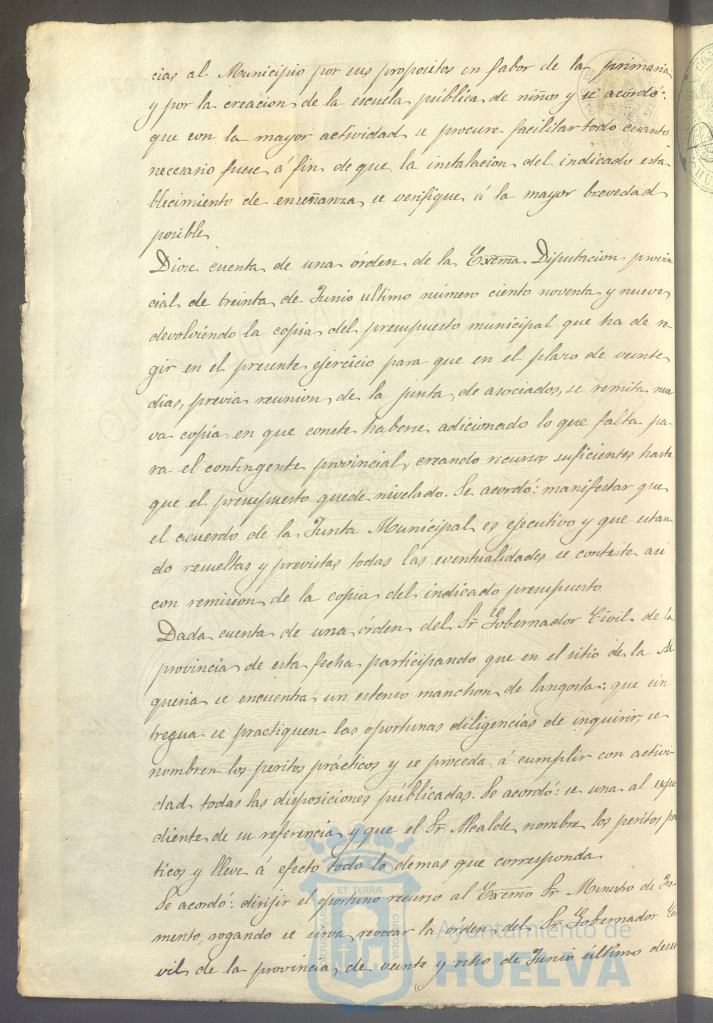 cias al Municipio por sus propositos en fabor de la primaria
y por la creacion de la escuela pública de niños y se acordó:
que con la mayor actividad se procure facilitar todo cuanto
necesario fuese á fin de que la instalacion del indicado esta
blecimiento de enseñanza se verifique á la mayor brevedad
posible
Diose cuenta de una órden de la Excma Diputacion provin
cial de treinta de Junio último número ciento noventa y nueve
devolviendo la copia del presupuesto municipal que ha de re
gir en el presente ejercicio para que en el plazo de veinte
dias, previa reunion de la junta de asociados, se remita nue
va copia en que conste haberse adicionado lo que falta pa
ra el contingente provincial, creando recursos suficientes hasta
que el presupuesto quede nivelado. Se acordó: manifestar que
el acuerdo de la Junta Municipal es ejecutivo y que estan
do resueltas y previstas todas las eventualidades se conteste así
con remision de la copia del indicado presupuesto
Dada cuenta de una órden del Sr Gobernador Civil de la
provincia de esta fecha participando que en el sitio de la Al
queria se encuentra un estenso manchon de langosta: que sin
tregua se practiquen las oportunas diligencias de inquirir, se
nombren los peritos prácticos y se proceda á cumplir con activi
dad todas las disposiciones publicadas. Se acordó: se una al espe
diente de su referencia y que el Sr Alcalde nombre los peritos
ticos y lleve á efecto todo lo demas que corresponda
Se acordó: dirijir el oportuno recurso al Excmo Sr Ministro de Fo
mento, rogando se sirva revocar la órden del Sr Gobernador Ci
vil de la provincia de veinte y ocho de Junio último
ET TERRÆ
CUSTODIA
Ayuntamiento de
HUELVA